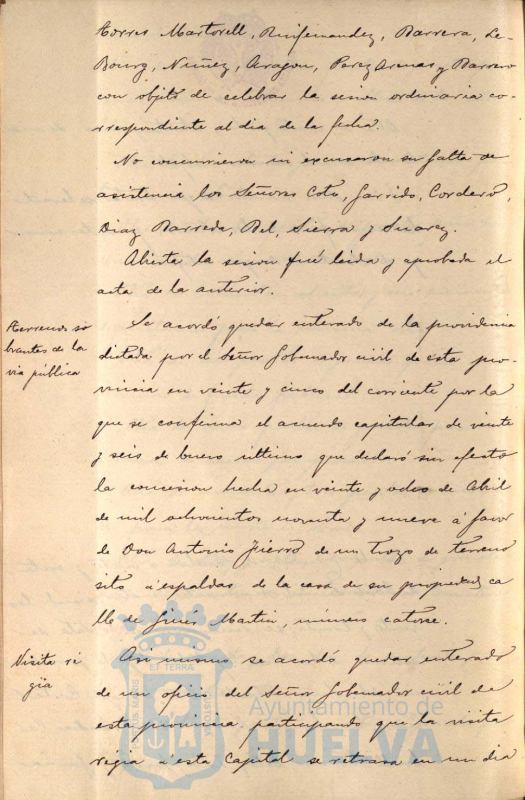 torres Martorell, Ruifernandez, Barrera, Le-
Bourg, Nuñez, Aragon, Perez Arenas y Barrero
con objeto de celebrar la sesion ordinaria co-
rrespondiente al dia de la fecha.
No concurrieron ni excusaron su falta de
asistencia los Señores Coto, Garrido, Cordero,
Diaz Barreda, Bel, Sierra y Suarez.
Abierta la sesion fué leida y aprobada el
acta de la anterior.
Terrenos so
brantes de la
via pública
Se acordó quedar enterado de la providencia
dictada por el Señor Gobernador civil de esta pro-
vincia en veinte y cinco del corriente por la
que se confirma el acuerdo capitular de veinte
y seis de Enero último que declaró sin efecto
la concesion hecha en veinte y ocho de Abril
de mil ochocientos noventa y nueve á favor
de Don Antonio Fierro de un trozo de terreno
sito á espaldas de la casa de su propiedad ca
lle de Gines Martin, número catorce.
Visita ré
gia
Asi mismo se acordó quedar enterado
de un oficio del Señor Gobernador civil de
esta provincia participando que la visita
regia á esta Capital se retrasa en un dia
PORTUS MARIS
ET TERRAE
CUSTODIA
Ayuntamiento de
HUELVA